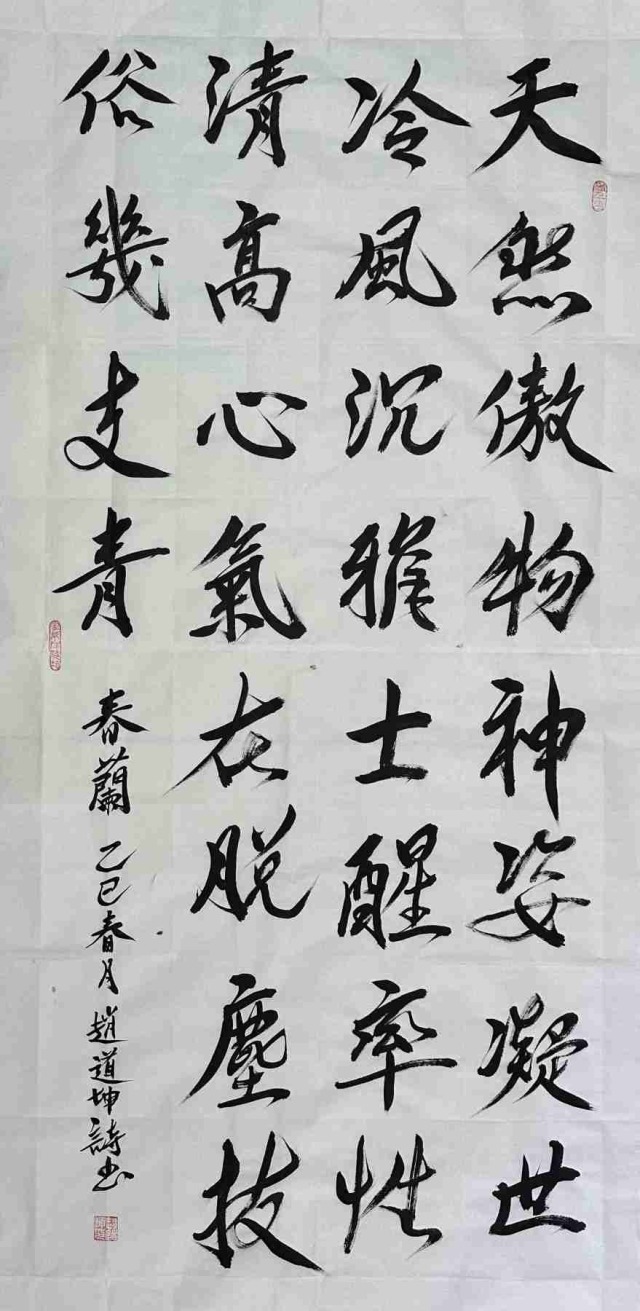 天然傲物神姿凝世
冷風沉雅士醒率性
清高心氣在脫塵拔
俗幾支青
春蘭 乙巳春月 趙道坤詩書